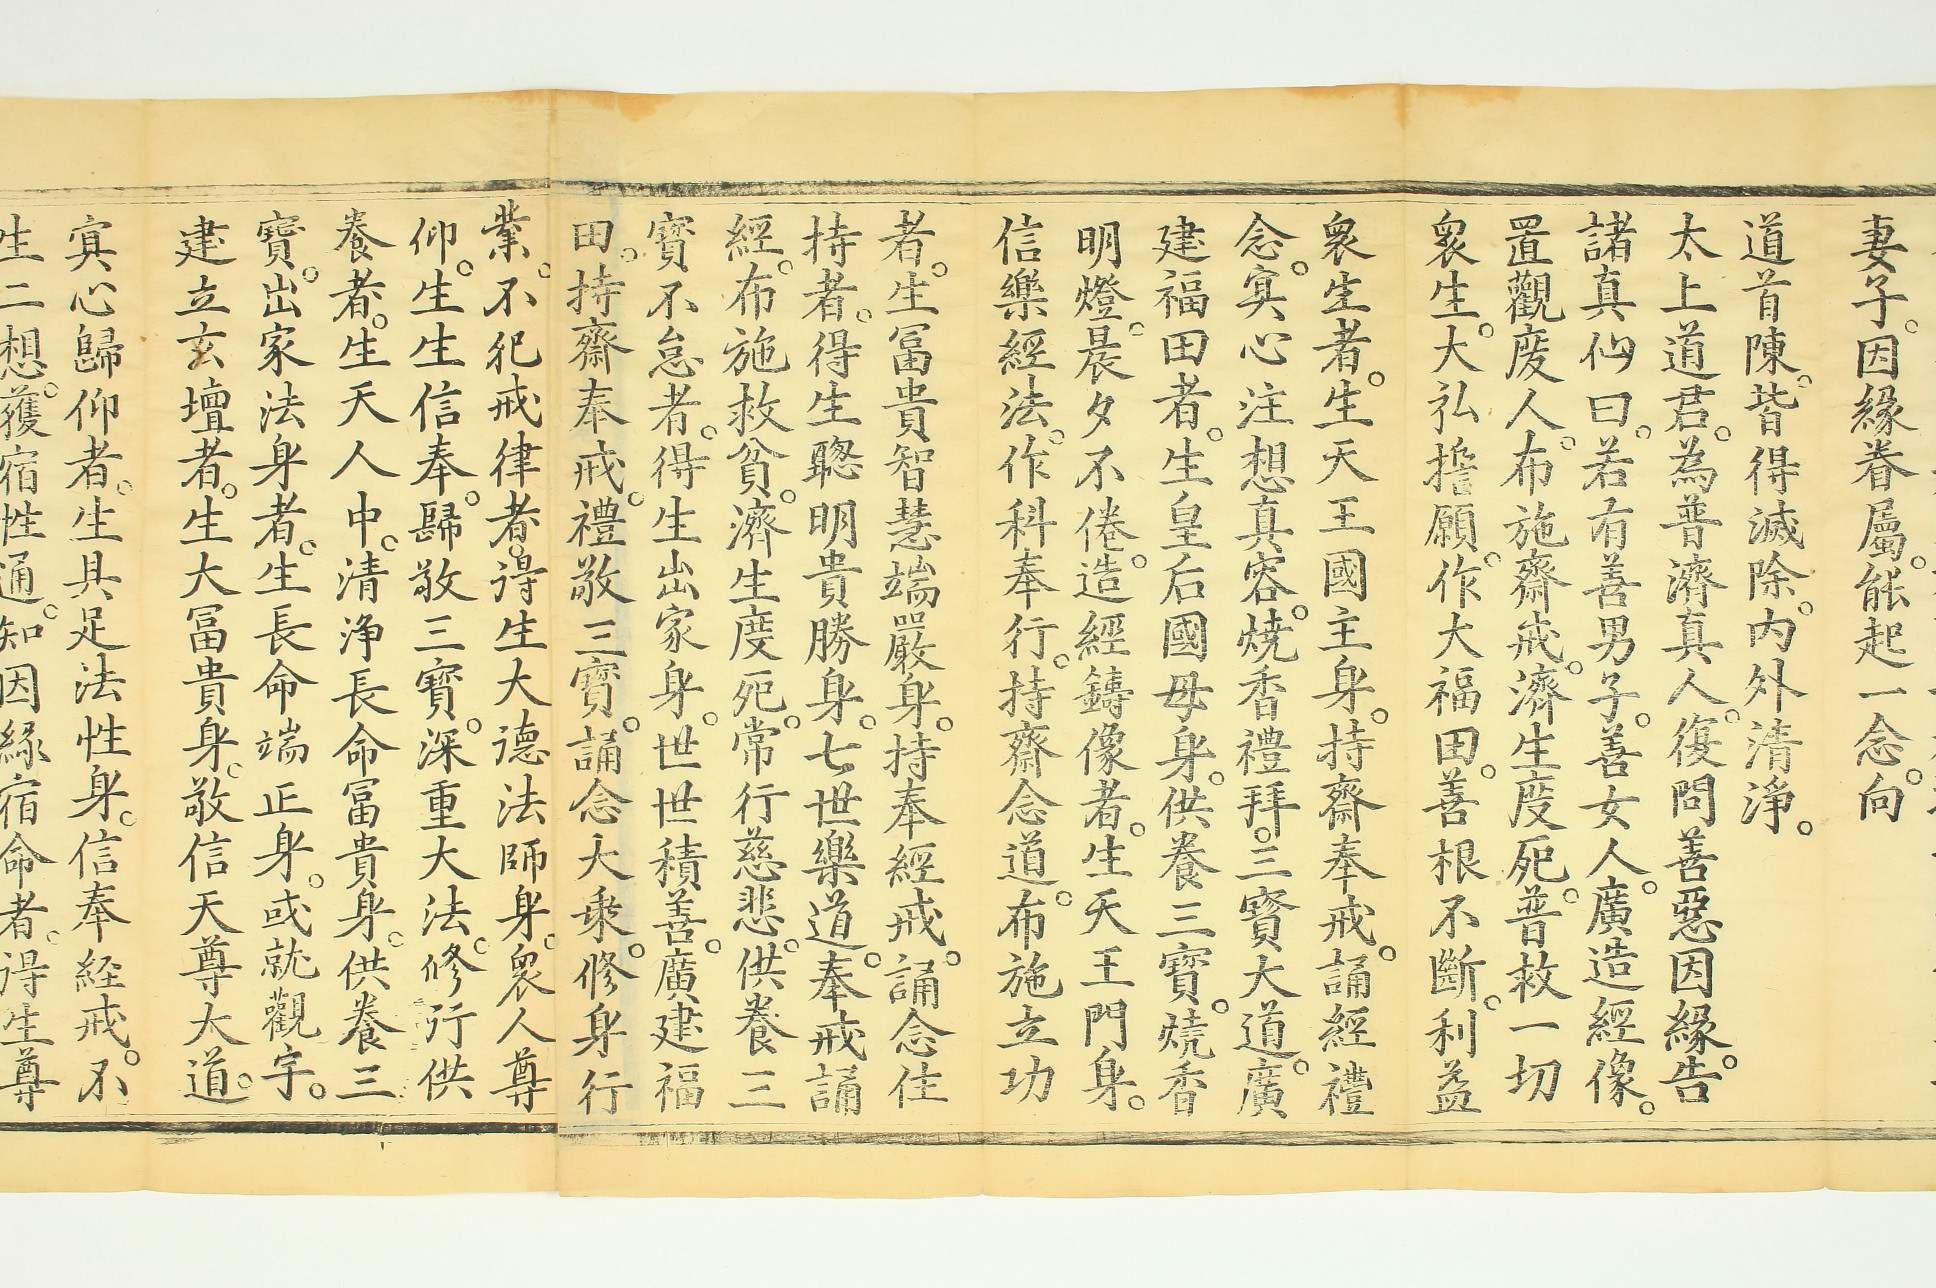 妻子。因緣眷屬。能起一念。向
道首陳。皆得滅除。內外清淨。
太上道君。為普濟真人。復問善惡因緣。告
諸真仙曰。若有善男子。善女人。廣造經像。
置觀度人。布施齋戒。濟生度死。普救一切
衆生。大弘擔願。作大福田。善根不斷。利益
衆生者。生天王國主身。持齋奉戒。誦經禮
念。寘心注想真容。燒香禮拜。三寶大道。廣
建福田者。生皇后國母身。供養三寶。燒香
明燈。晨夕不倦。造經鑄像者。生天王門身。
信樂經法。作科奉行。持齋念道。布施立功
者。生冨貴智慧端嚴身。持奉經戒。誦念住
持者。得生聰明貴勝身。七世樂道。奉戒誦
經。布施救貧。濟生度死。常行慈悲。供養三
寶不怠者。得生出家身。世世積善。廣建福
田。持齋奉戒。禮敬三寶。誦念大乗。修身行
業。不犯戒律者。得生大德法師身。衆人尊
仰。生生信奉。歸敬三寶。深重大法。修行供
養者。生天人中。清淨長命冨貴身。供養三
寶。出家法身者。生長命端正身。或就觀宇。
建立玄壇者。生大冨貴身。敬信天尊大道。
寘心歸仰者。生具足法性身。信奉經戒。不
生二想。獲宿性通。知因緣宿命者。得生尊